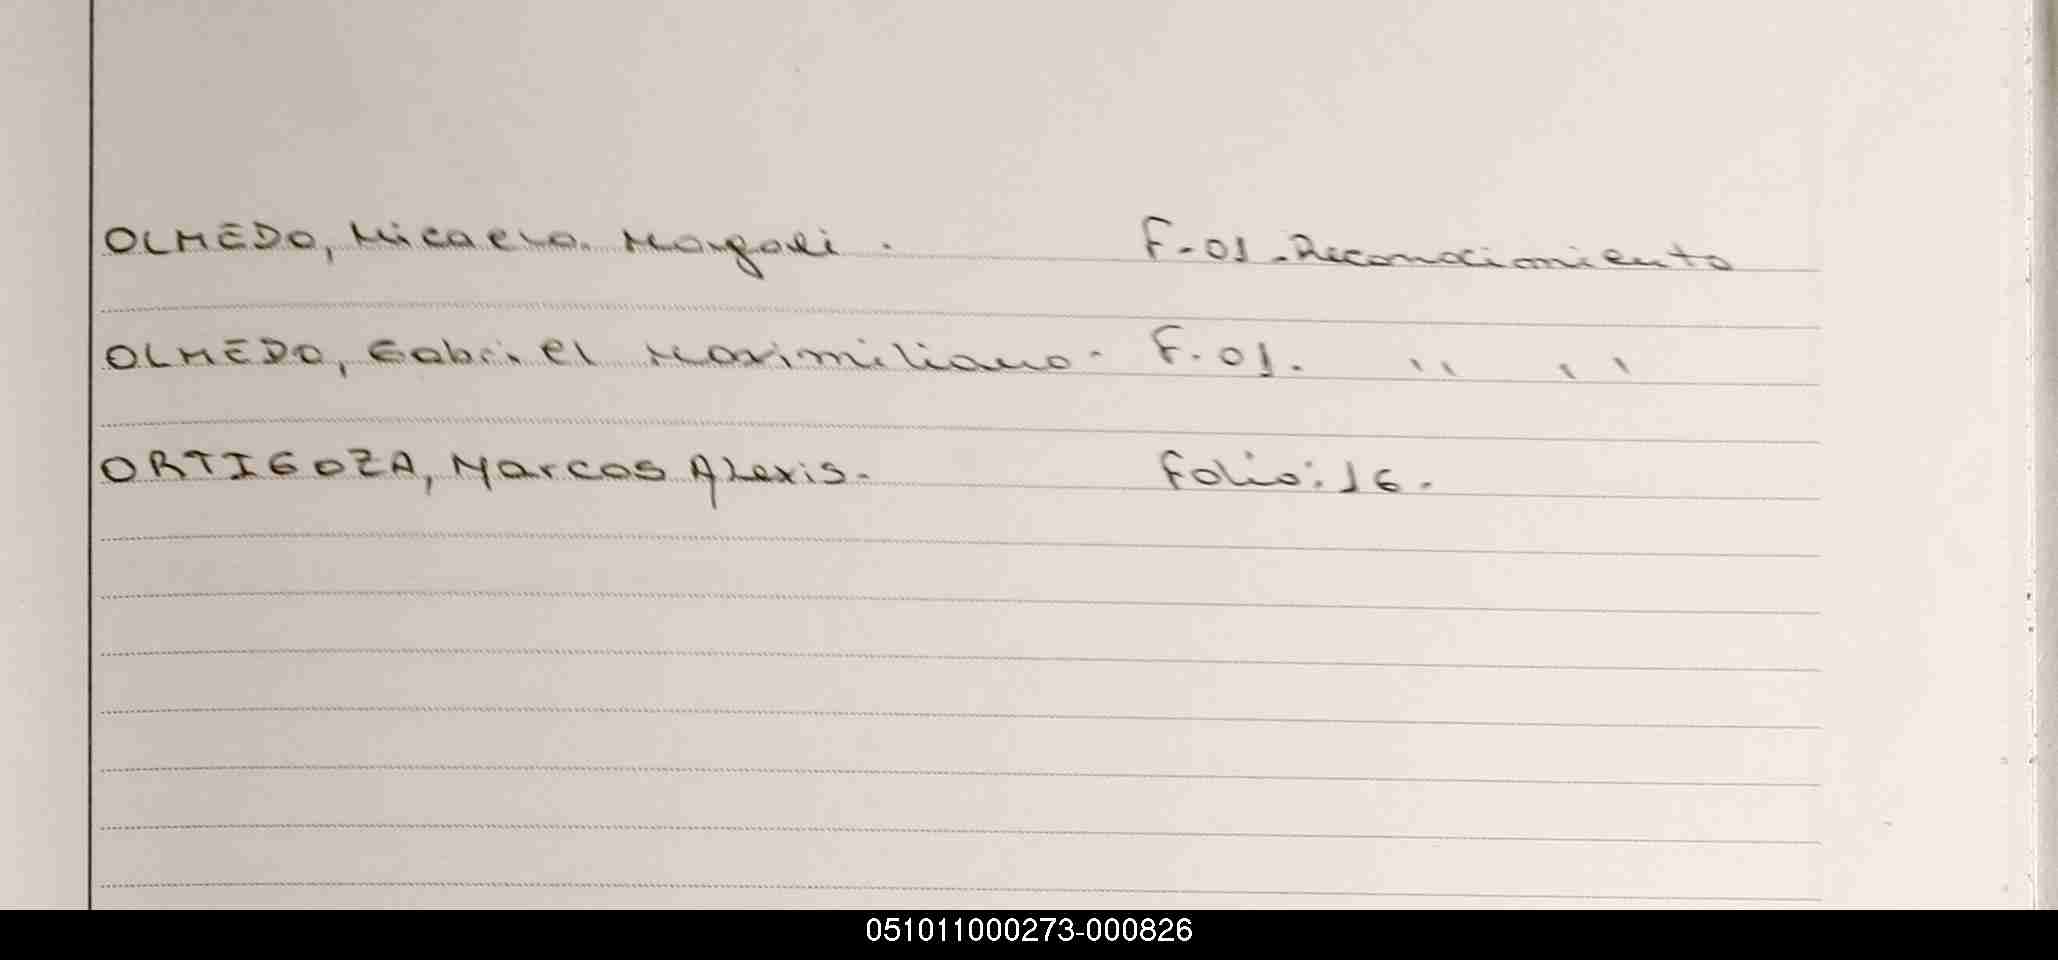 OLMEDO, Micaela Magali. F-01. Reconocimiento
OLMEDO, Gabriel Maximiliano. F.01. " "
ORTIGOZA, Marcos Alexis. Folio: 16.
051011000273-000826